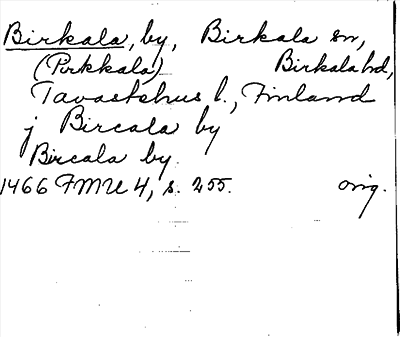 Birkala, by, Birkala sn,
(Pirkkala) Birkala hd,
Tavastehus l., Finland
j Bircala by
Bircala by.
1466 FMU 4, s. 255. orig.